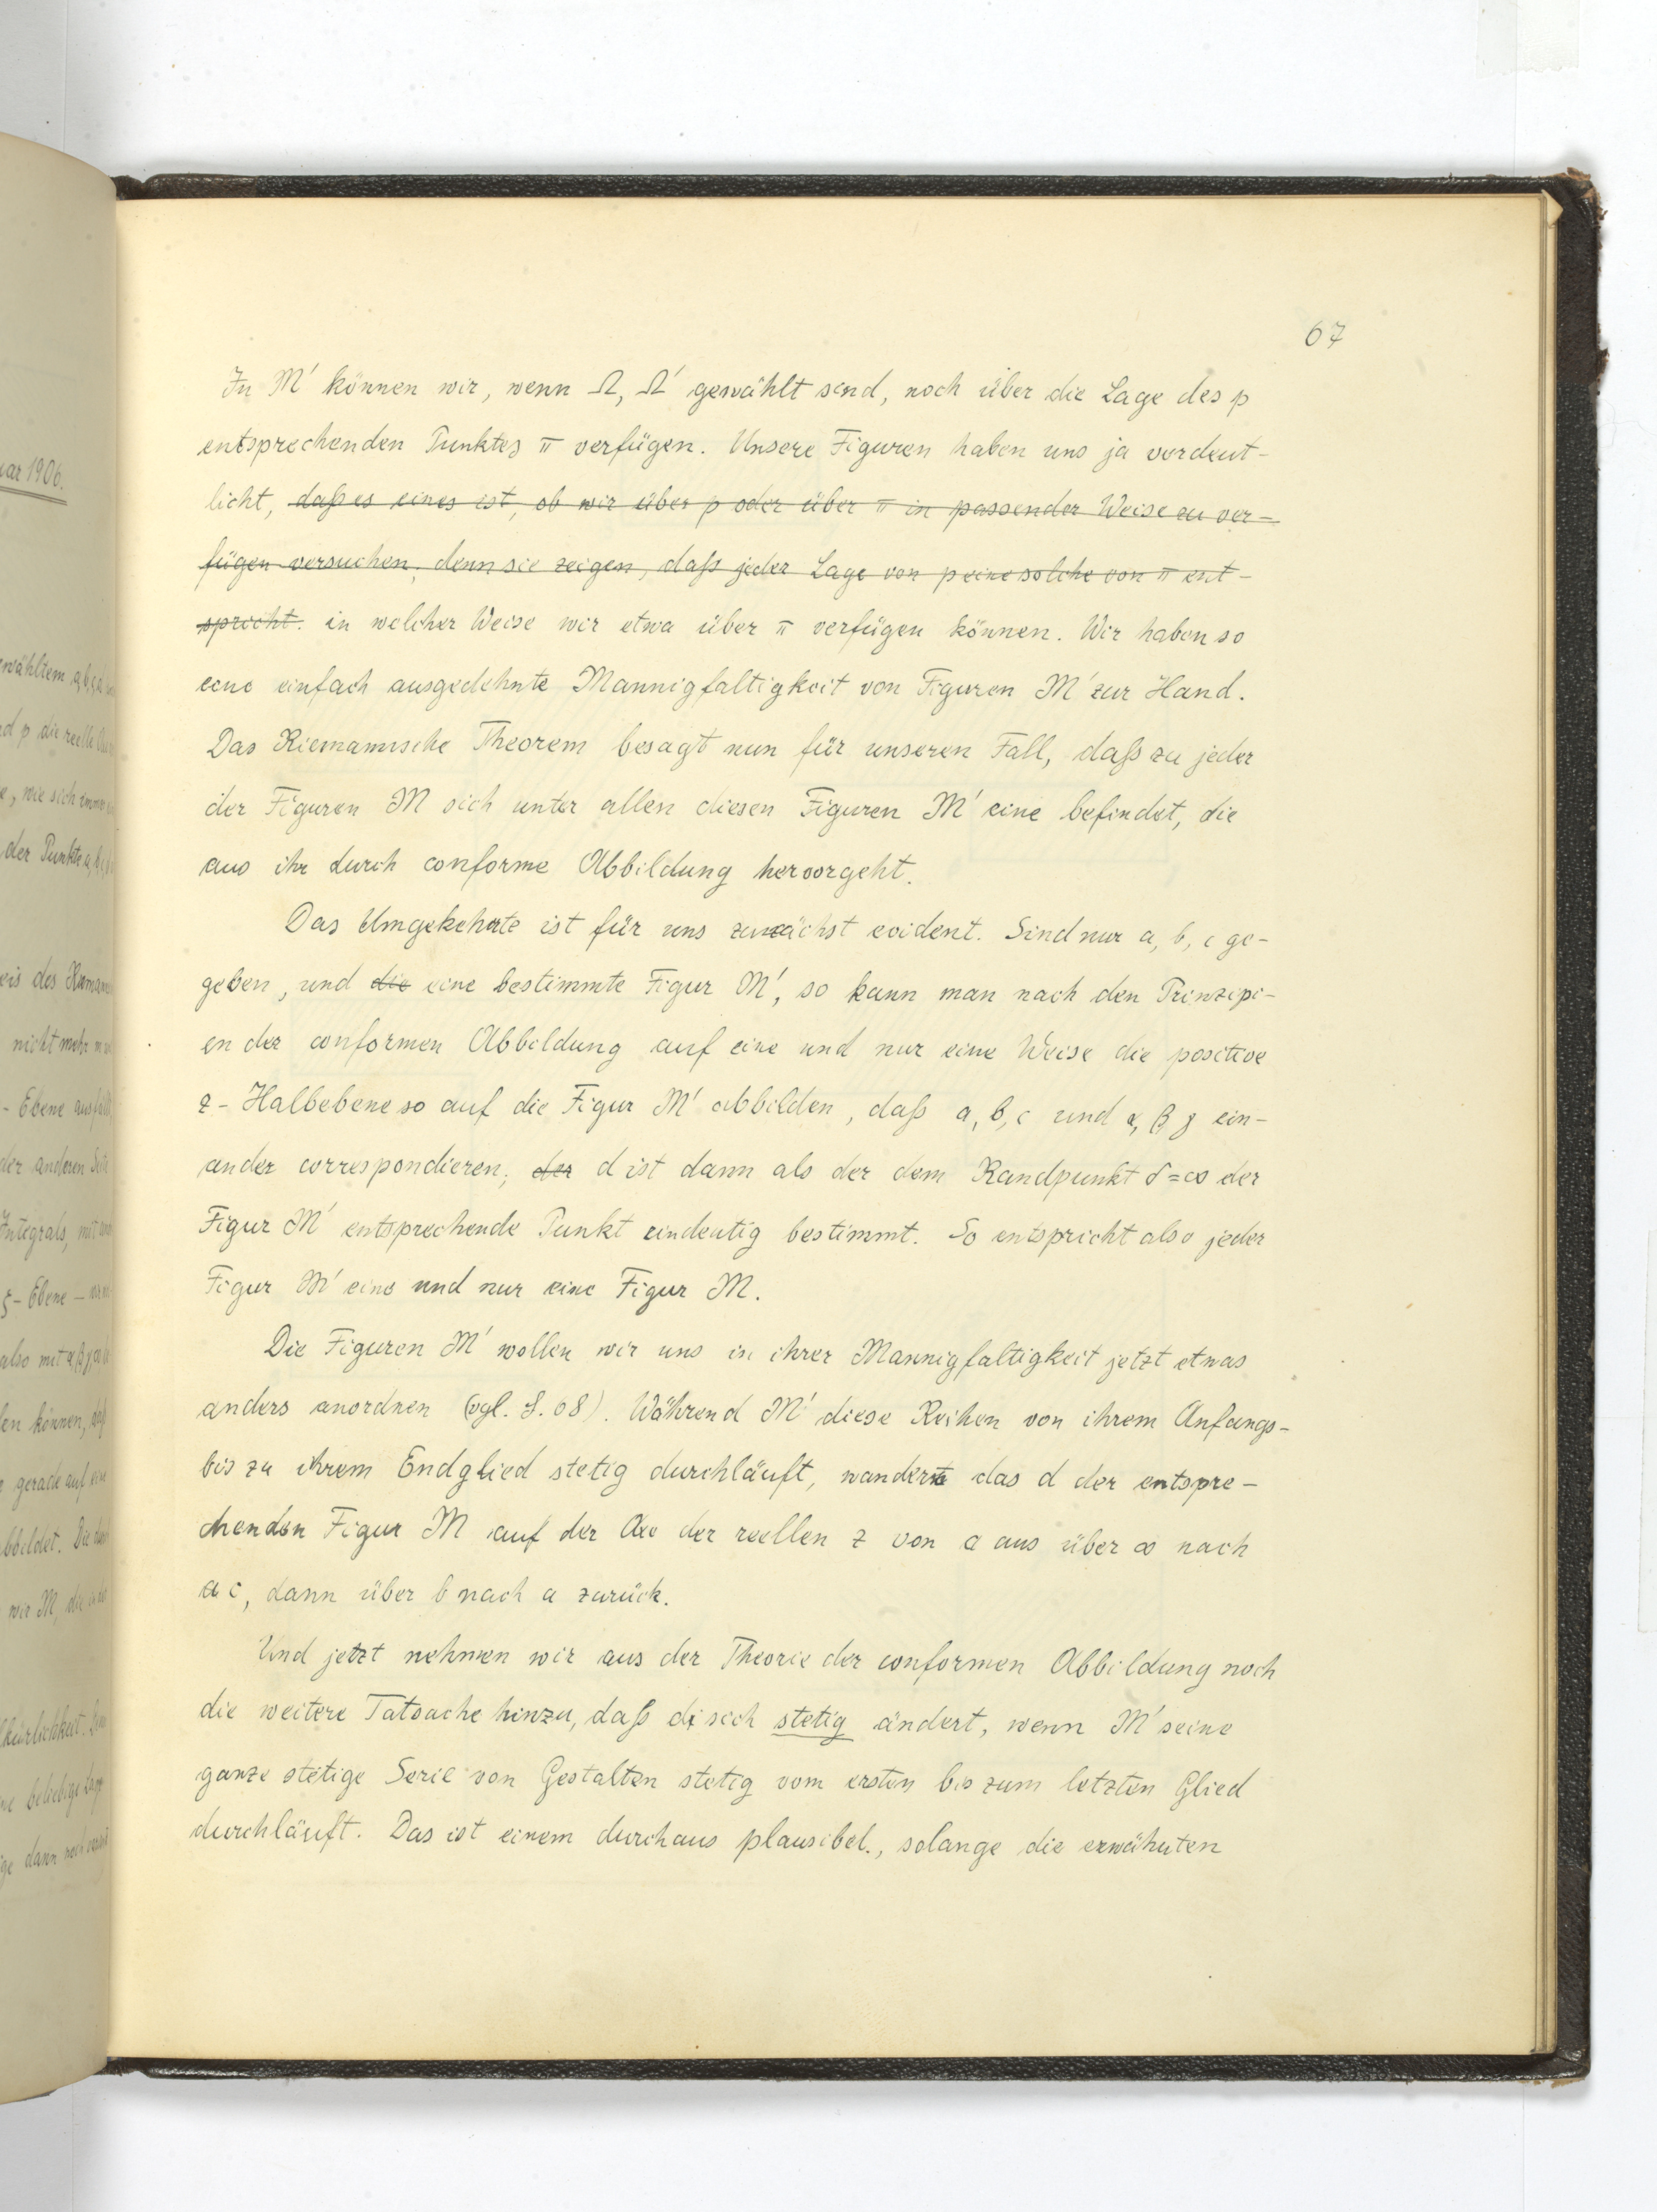 67
In M' können wir, wenn Ω, Ω' gewählt sind, noch über die Lage des p
entsprechenden Punktes π verfügen. Unsere Figuren haben uns ja verdeut-
licht, daß es eines ist, ob wir über p oder über π in passender Weise zu ver-
fügen versuchen; denn sie zeigen, daß jeder Lage von p eine solche von π ent-
spricht. in welcher Weise wir etwa über π verfügen können. Wir haben so
eine einfach ausgedehnte Mannigfaltigkeit von Figuren M' zur Hand.
Das Riemannsche Theorem besagt nun für unseren Fall, daß zu jeder
der Figuren M sich unter allen diesen Figuren M' eine befindet, die
aus ihr durch conforme Abbildung hervorgeht.
Das Umgekehrte ist für uns zunächst evident. Sind nur a, b, c ge-
geben, und die eine bestimmte Figur M', so kann man nach den Prinzipi-
en der conformen Abbildung auf eine und nur eine Weise die positive
z-Halbebene so auf die Figur M' abbilden, daß a, b, c und α, β γ ein-
ander correspondieren; der d ist dann als der dem Randpunkt δ=∞ der
Figur M' entsprechende Punkt eindeutig bestimmt. So entspricht also jeder
Figur M' eine und nur eine Figur M.
Die Figuren M' wollen wir uns in ihrer Mannigfaltigkeit jetzt etwas
anders anordnen (vgl. S. 68). Während M' diese Reihen von ihrem Anfangs-
bis zu ihrem Endglied stetig durchläuft, wandert das d der entspre-
chenden Figur M auf der Axe der reellen z von a aus über ∞ nach
c, dann über b nach a zurück.
Und jetzt nehmen wir aus der Theorie der conformen Abbildung noch
die weitere Tatsache hinzu, daß d sich stetig ändert, wenn M' seine
ganze stetige Serie von Gestalten stetig vom ersten bis zum letzten Glied
durchläuft. Das ist einem durchaus plausibel., solange die erwähnten
uar 1906.